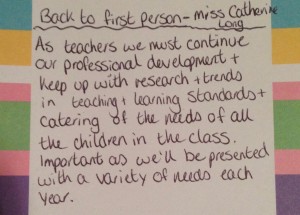 Back to first person - miss Catherine
Long
As teachers we must continue
our professional development +
keep up with research + trends
in teaching + learning standards +
catering of the needs of all
the children in the class.
Important as we'll be presented
with a variety of needs each
year.